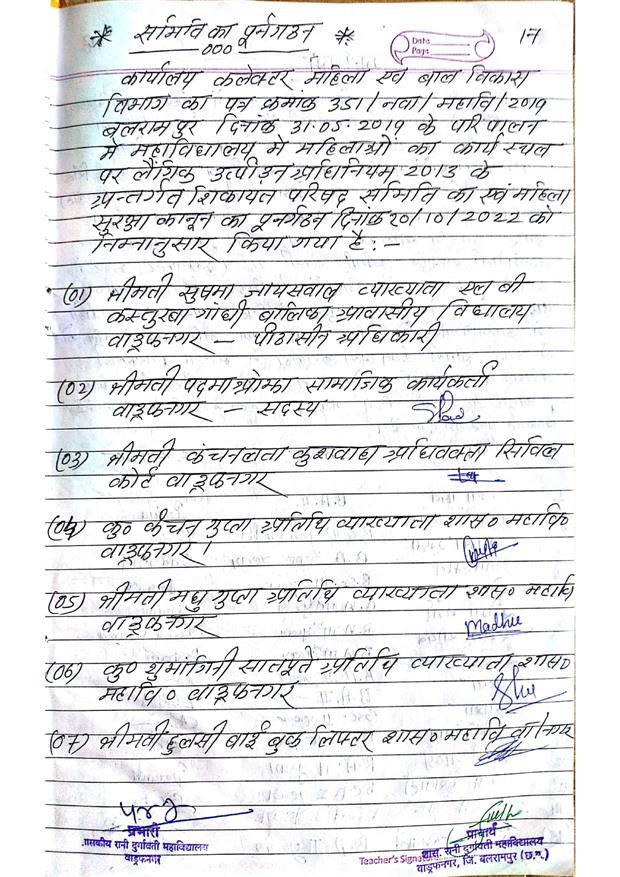 * समिति का पूर्नगठन *
Date
Page
17
कार्यालय कलेक्टर महिला एवं बाल विकास
विभाग का पत्र क्रमांक 351/नवा/महावि/2019
बलरामपुर दिनांक 31.05.2019 के परिपालन
में महाविधालय मे महिलाओ का कार्य स्थल
पर लैंगिक उत्पीड़न अधिनियम 2013 के
अन्तर्गत शिकायत परिषद समिति का एवं महिला
सुरक्षा कानून का पूनर्गठन दिनांक 20/10/2022 को
निम्नानुसार किया गया है:-
(01) श्रीमती सुषमा जायसवाल व्याख्याता एल बी
कस्तुरबा गांधी बालिका आवासीय विधालय
वाड्रफनगर - पीठासीन अधिकारी
(02) श्रीमती पदमा ओझा सामाजिक कार्यकर्ता
वाड्रफनगर - सदस्य
(03) श्रीमती कंचनलता कुशवाहा अधिवक्ता सिविल
कोर्ट वाड्रफनगर
(04) कु० कंचन गुप्ता अतिथि व्याख्याता शास० महावि०
वाड्रफनगर।
Gupta
(05) श्रीमती मधु गुप्ता अतिथि व्याख्याता शास० महावि
वाड्रफनगर
Madhu
(06) कु० शुभांगिनी सातपूते अतिथि व्याख्याता शास०
महावि० वाड्रफनगर
(07) श्रीमती हुलसी बाई बुक लिफ्टर शास० महावि वा/नगर
प्रभारी
शासकीय रानी दुर्गावती महाविद्यालय
वाड्रफनगर
Teacher's Signature
प्राचार्य
शास. रानी दुर्गावती महाविद्यालय
वाड्रफनगर, जि. बलरामपुर (छ.ग.)